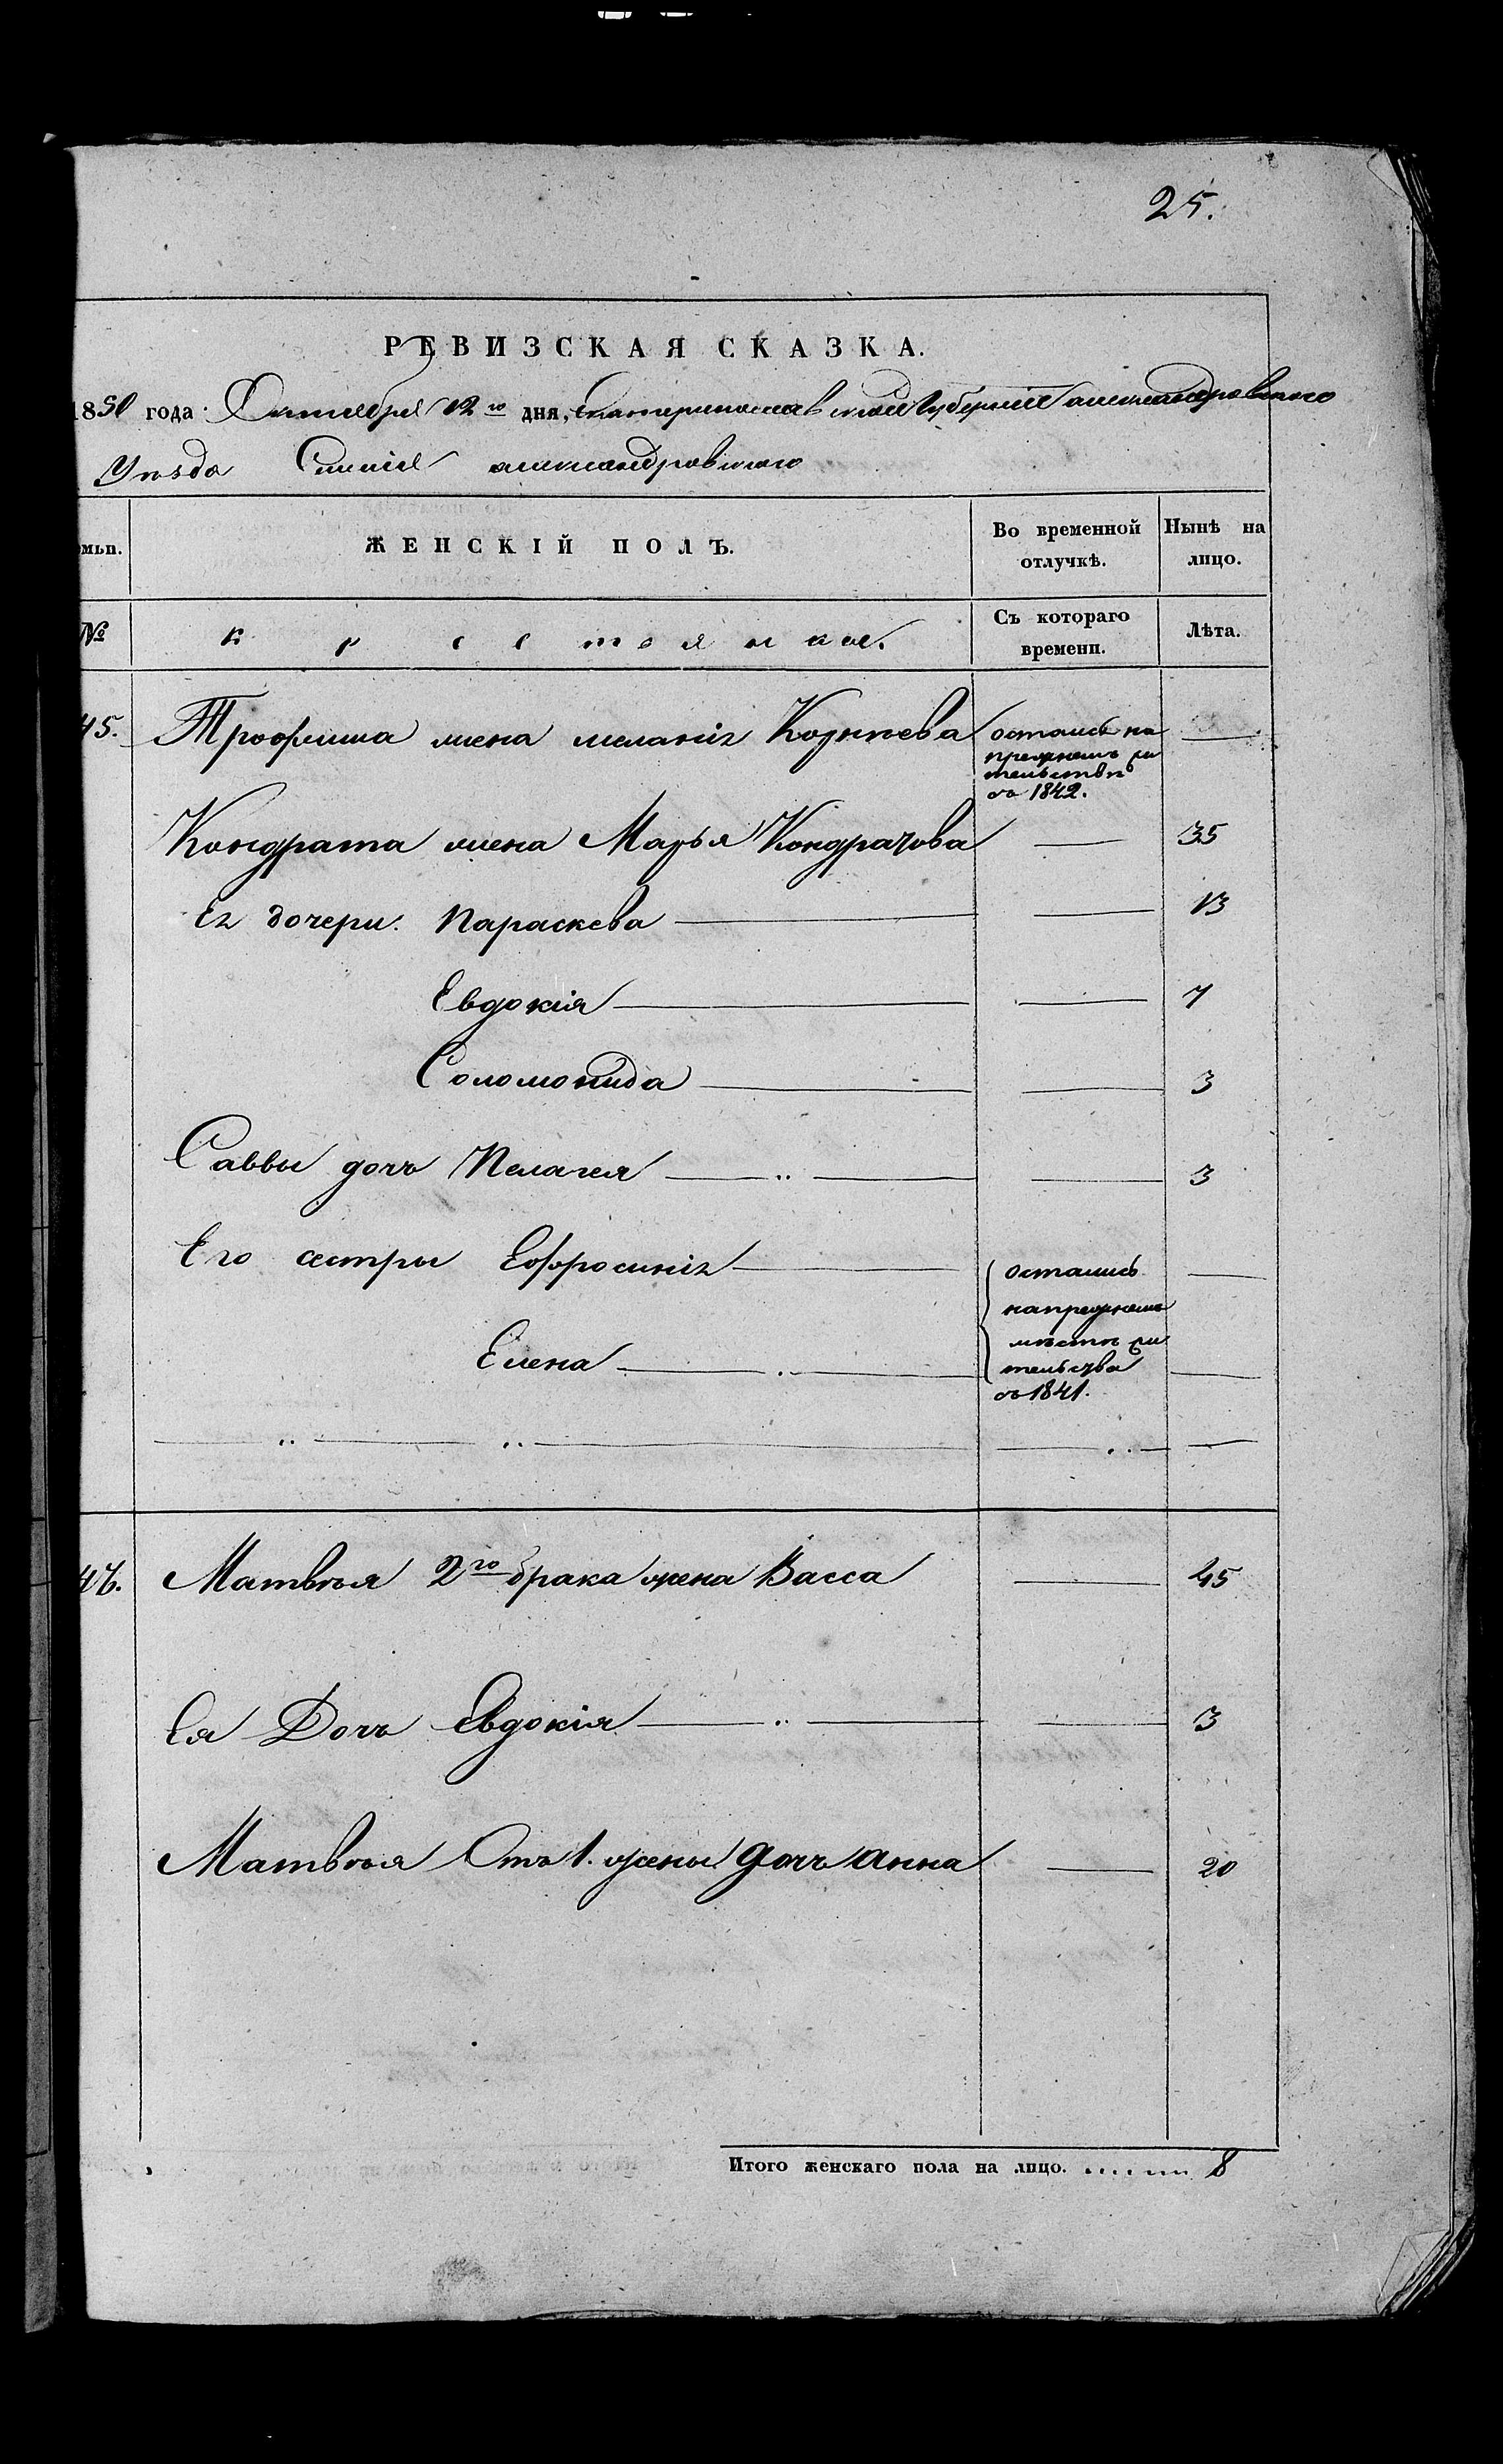 25.
РЕВИЗСКАЯ СКАЗКА.
1850 года Октября 12го дня, Екатеринославской Губернии александровского
Уѣзда Сѣленія александровского
мьи. ЖЕНСКІЙ ПОЛЪ. Во временной отлучкѣ. Нынѣ на лицо.
№ крестьянки. Съ котораго времени. Лѣта.
45. Трофима жена меланія остались на
прежнемъ жи
тельствѣ
съ 1842.
Кондрата жена Марья Кондратова — 35
Ея дочери. Параскева — 13
Евдокія — 7
Соломонида — 3
Саввы дочь Пелагея — 3
Его сестры Ефросинія — остались
напрежнемъ
Елена — мѣстѣ жи
тельства
съ 1841.
46. Матвѣя 2го брака жена Васса — 45
Ея Дочь Евдокія — 3
Матвѣя Отъ 1. жены дочь анна — 20
Итого женскаго пола на лицо. ....... 8